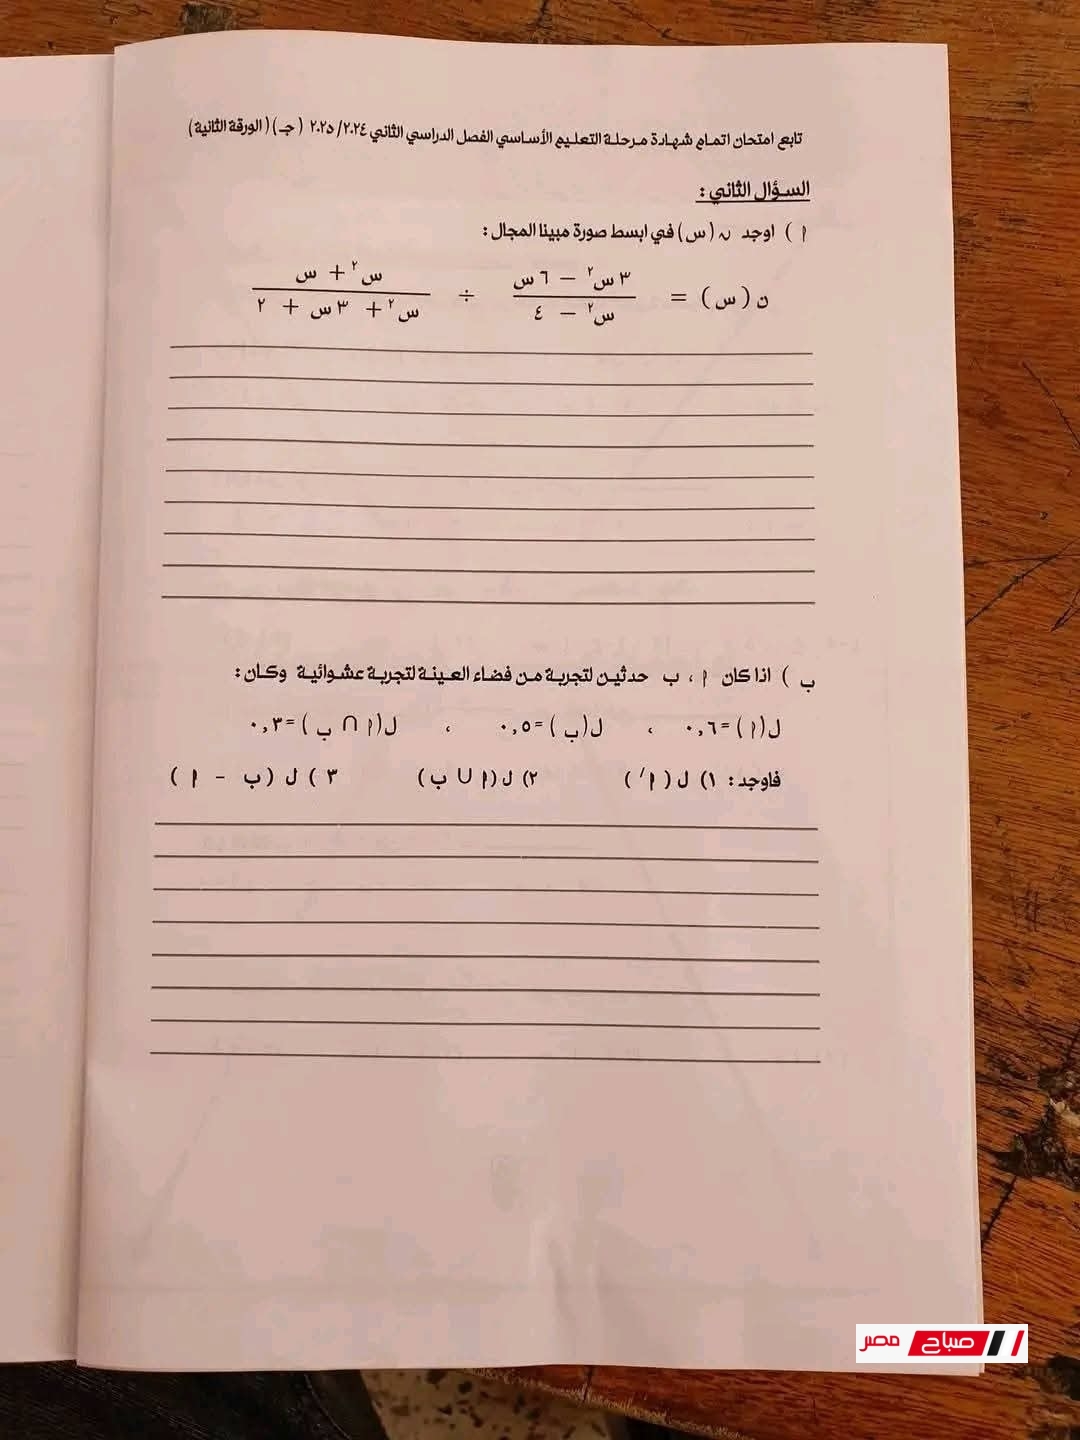 تابع امتحان اتمام شهادة مرحلة التعليم الأساسي الفصل الدراسي الثاني ٢٠٢٤/ ٢٠٢٥ ( جـ ) ( الورقة الثانية )
السؤال الثاني :
أ ) اوجد ن (س) في ابسط صورة مبينا المجال :
ن ( س ) = ٣ س٢ – ٦ س / س٢ – ٤ ÷ س٢ + س / س٢ + ٣ س + ٢
ب ) اذا كان أ ، ب حدثين لتجربة من فضاء العينة لتجربة عشوائية وكان :
ل( أ ) = ٠,٦ ، ل( ب ) = ٠,٥ ، ل( أ ∩ ب ) = ٠,٣
فاوجد : ١) ل ( أ/ ) ٢) ل ( أ ∪ ب ) ٣ ) ل ( ب - أ )
صباح مصر